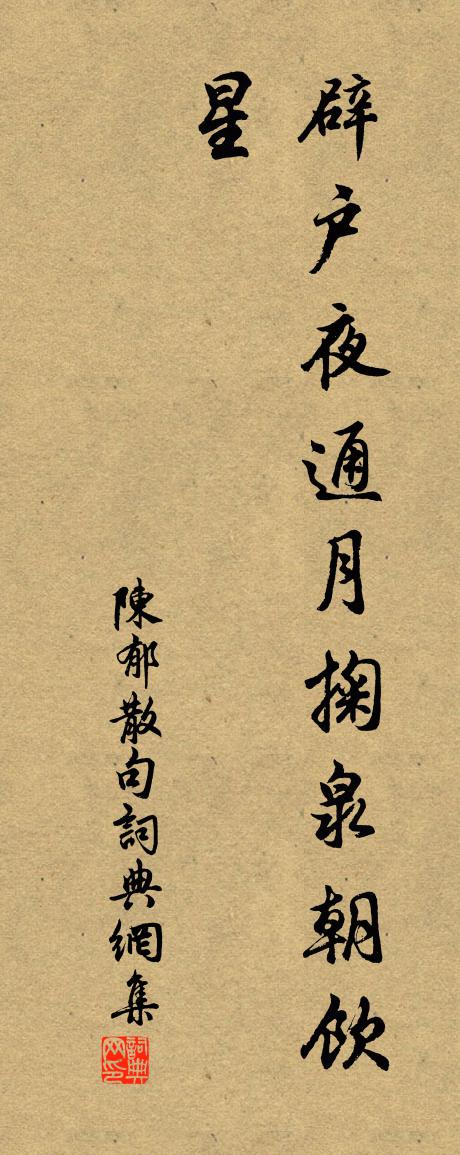 辟户夜通月掬泉朝飲
星
陳郁散句詞典網集
詞典
网印